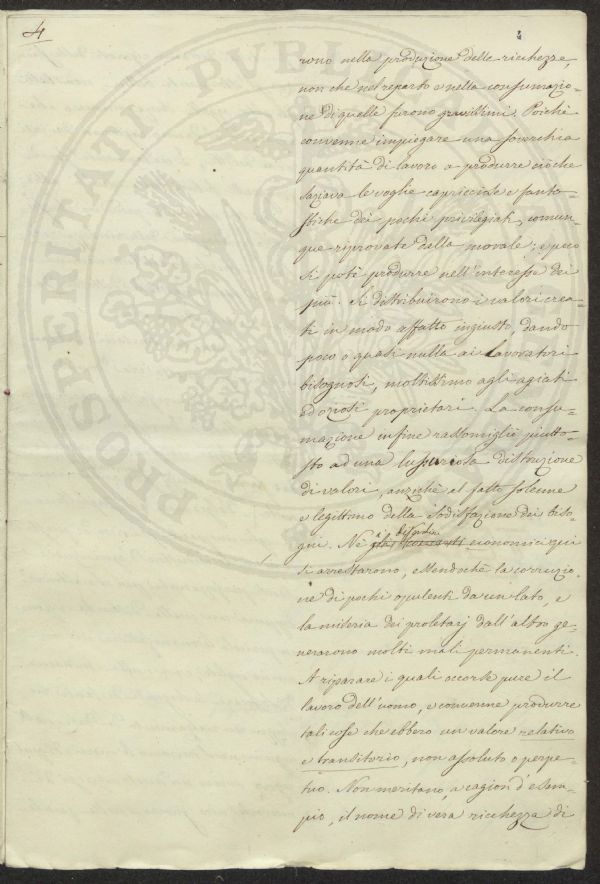 4
rono nella produzione delle ricchezze,
non che nel reparto e nella consumazio-
ne di quelle furono gravissimi. Poichè
convenne impiegare una soverchia
quantità di lavoro a produrre ciò che
saziava le voglie capricciose e fanta-
stiche dei pochi privilegiati, comun-
que riprovate dalla morale; e poco
si potè produrre nell'interesse dei
più. Si distribuirono i valori crea-
ti in modo affatto ingiusto, dando
poco o quasi nulla ai lavoratori
bisognosi, moltissimo agli agiati
ed oziosi proprietari. La consu-
mazione infine rassomigliò piutto-
sto ad una lussuriosa distruzione
di valori, anzichè al fatto solenne
e legittimo della sodisfazione dei biso-
gni. Nè i disordini economici qui
si arrestarono, essendochè la corruzio-
ne di pochi opulenti da un lato, e
la miseria dei proletarj dall'altro ge-
nerarono molti mali permanenti.
A riparare i quali occorse pure il
lavoro dell'uomo, e convenne produrre
tali cose che ebbero un valore relativo
e transitorio, non assoluto o perpe-
tuo. Non meritano, a cagion d'esem-
pio, il nome di vera ricchezza di
PROSPERITATI PVBLICAE